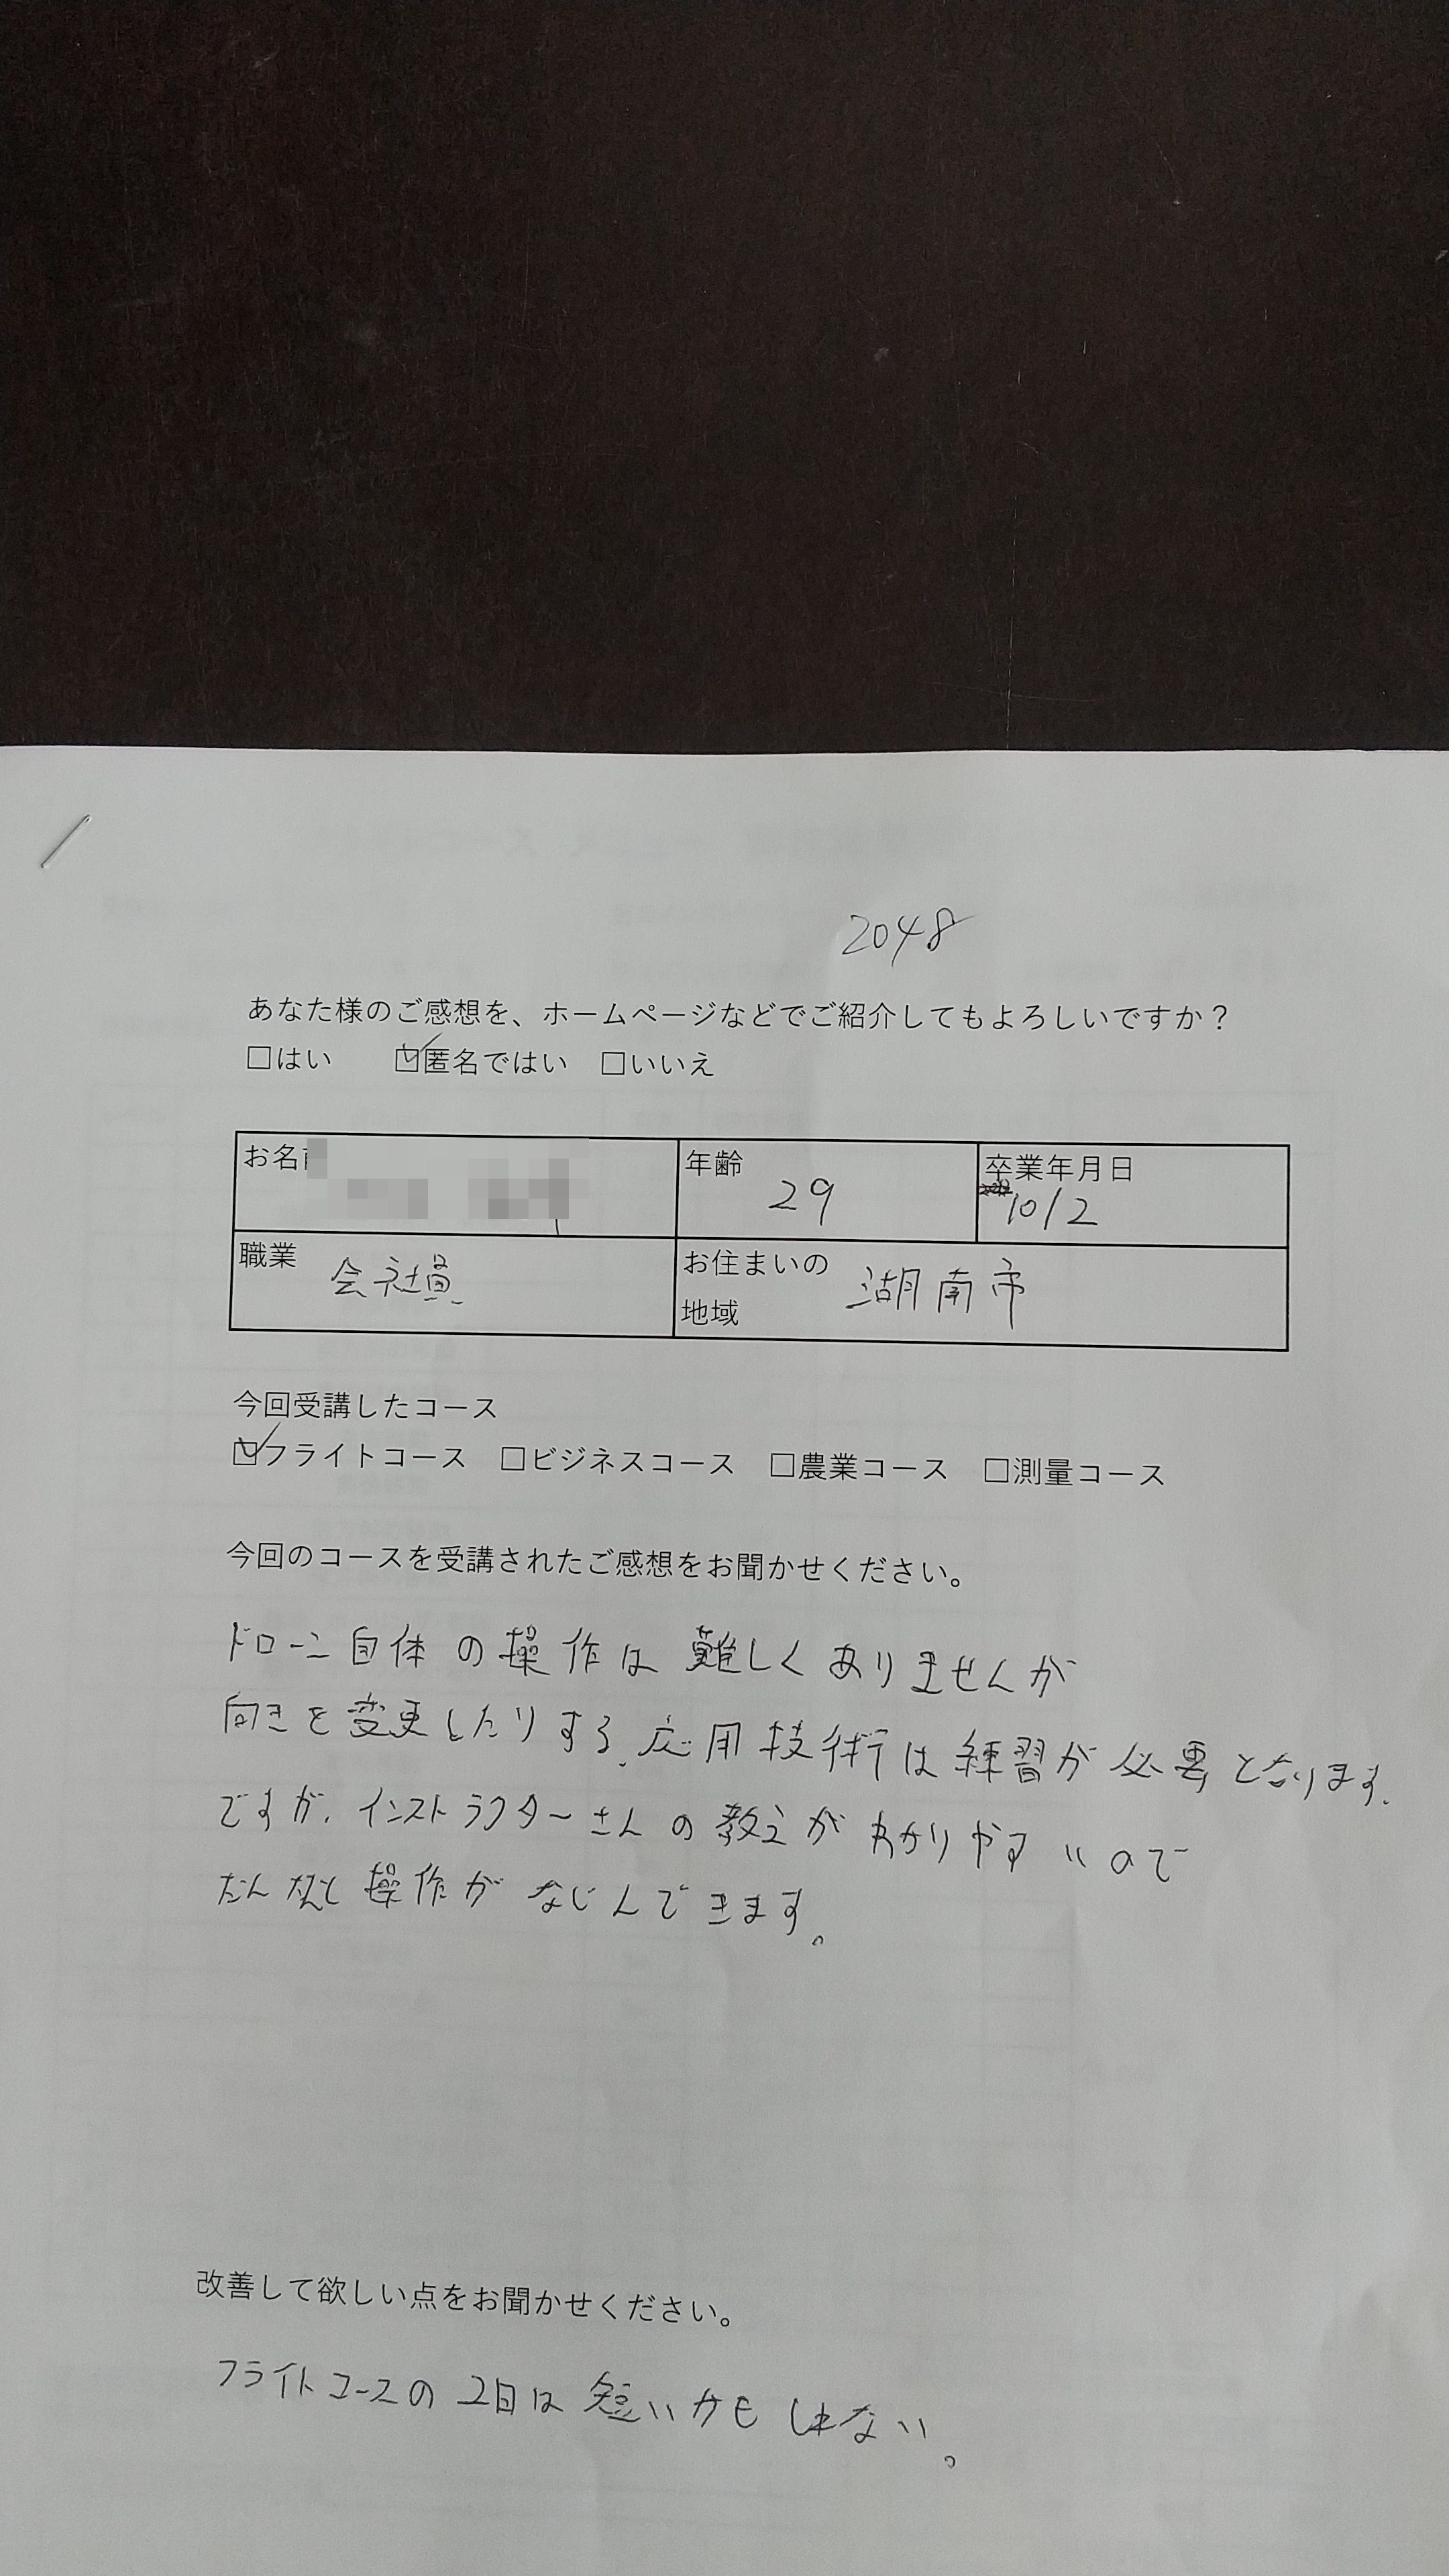 2048
あなた様のご感想を、ホームページなどでご紹介してもよろしいですか？
□はい ☑匿名ではい □いいえ
お名
年齢 29
卒業年月日 10/2
職業 会社員
お住まいの地域 湖南市
今回受講したコース
☑フライトコース □ビジネスコース □農業コース □測量コース
今回のコースを受講されたご感想をお聞かせください。
ドローン自体の操作は難しくありませんが
向きを変更したりする、応用技術は練習が必要となります。
ですが、インストラクターさんの教えがわかりやすいので
だんだんと操作がなじんできます。
改善して欲しい点をお聞かせください。
フライトコースの2日は短いかもしれない。